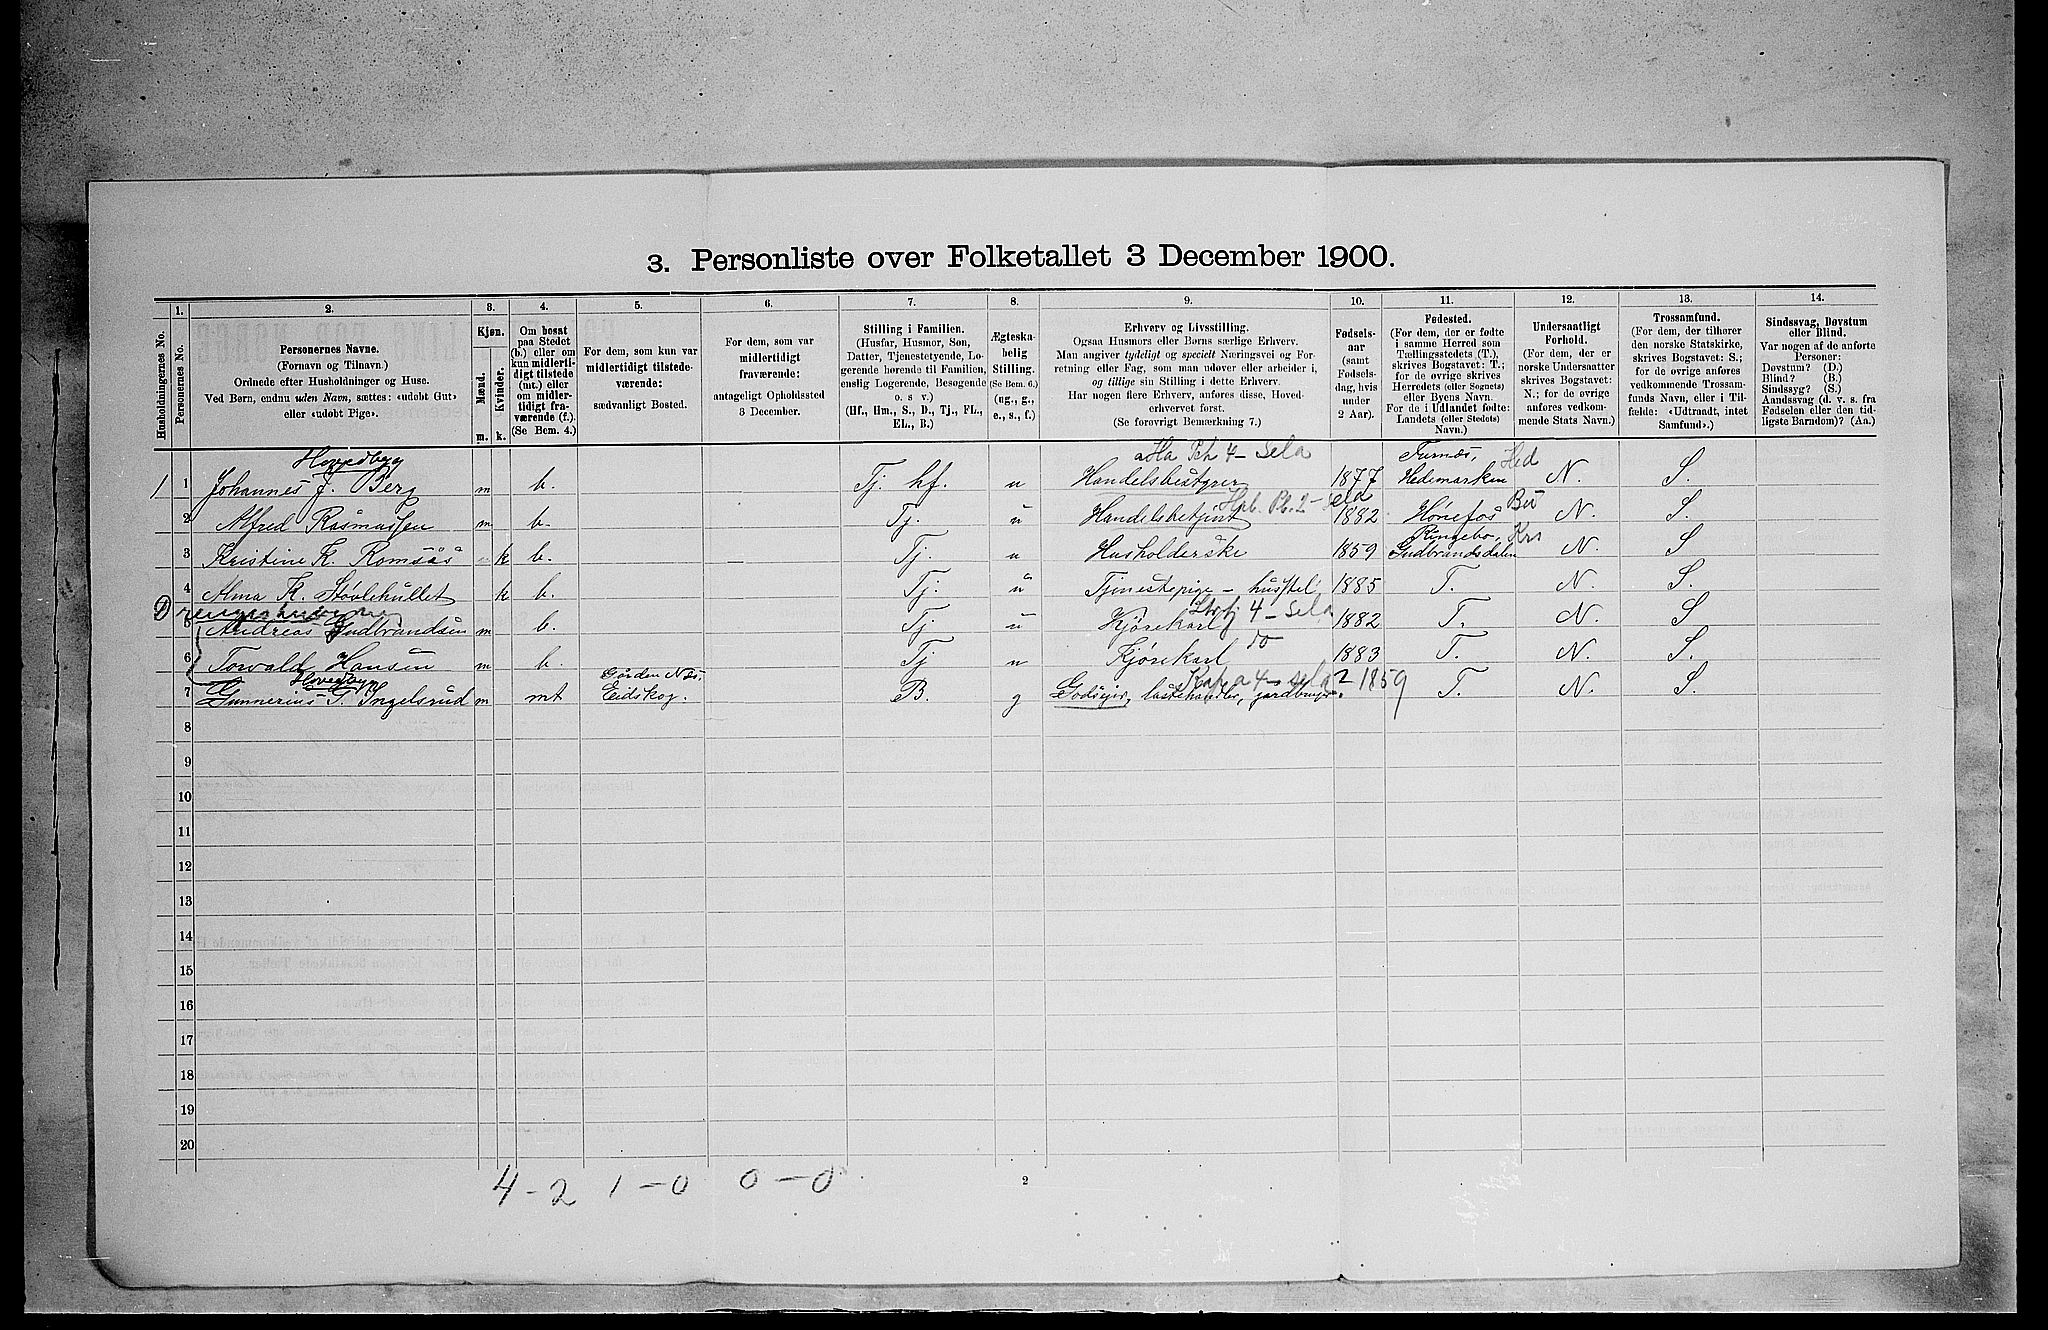 3. Personliste over Folketallet 3 December 1900.
1. 2. 3. 4. 5. 6. 7. 8. 9. 10. 11. 12. 13. 14.
Husholdningernes No.
Personernes No.
Personernes Navne.
(Fornavn og Tilnavn.)
Ordnede efter Husholdninger og Huse.
Ved Børn, endnu uden Navn, sættes: «udøbt Gut»
eller «udøbt Pige».
Kjøn.
Mænd.
Kvinder.
m. k.
Om bosat
paa Stedet
(b.) eller om
kun midlerti-
digt tilstede
(mt.) eller
om midler-
tidigt fra-
værende (f.).
(Se Bem. 4.)
For dem, som kun var
midlertidigt tilstede-
værende:
sædvanligt Bosted.
For dem, som var
midlertidigt
fraværende:
antageligt Opholdssted
3 December.
Stilling i Familien.
(Husfar, Husmor, Søn,
Datter, Tjenestetyende, Lo-
gerende hørende til Familien,
enslig Logerende, Besøgende
o. s. v.)
(Hf., Hm., S., D., Tj., FL.,
EL., B.)
Ægteska-
belig
Stilling.
(Se Bem. 6.)
(ug., g.,
e., s., f.)
Erhverv og Livsstilling.
Ogsaa Husmors eller Børns særlige Erhverv.
Man angiver tydeligt og specielt Næringsvei og For-
retning eller Fag, som man udøver eller arbeider i,
og tillige sin Stilling i dette Erhverv.
Har nogen flere Erhverv, anføres disse, Hoved-
erhvervet først.
(Se forøvrigt Bemærkning 7.)
Fødsels-
aar
(samt
Fødsels-
dag, hvis
under
2 Aar).
Fødested.
(For dem, der er fødte
i samme Herred som
Tællingsstedets (T.),
skrives Bogstavet: T.;
for de øvrige skrives
Herredets (eller Sognets)
eller Byens Navn.
For de i Udlandet fødte:
Landets (eller Stedets)
Navn.)
Undersaatligt
Forhold.
(For dem, der er
norske Undersaatter
skrives Bogstavet:
N.; for de øvrige
anføres vedkom-
mende Stats Navn.)
Trossamfund.
(For dem, der tilhører
den norske Statskirke,
skrives Bogstavet: S.;
for de øvrige anføres
vedkommende Trossam-
funds Navn, eller i Til-
fælde: «Udtraadt, intet
Samfund».)
Sindssvag, Døvstum
eller Blind.
Var nogen af de anførte
Personer:
Døvstum? (D.)
Blind? (B.)
Sindssyg? (S.)
Aandssvag (d. v. s. fra
Fødselen eller den tid-
ligste Barndom)? (Aa.)
Hovedbyg 4 - sela Hed
1 1 Johannes J. Berg m b. Tj. hf. u Handelsbestyrer 1877 Hedemarken N. S.
2 Alfred Rasmussen m b. Tj. u Handelsbetjent 1882 Hønefos Bu N. S.
Ringebo, Krs
3 Kristine K. Romsås k b. Tj. u Husholderske 1859 Gudbrandsdalen N. S
4 Alma K. Støvlehullet k b. Tj. u Tjenestepige - husstel 1885 T. N. S.
4 - sela
5 Andreas Gudbrandsen m b. Tj. u Kjørekarl 1882 T. N. S
do
6 Torvald Hansen m b. Tj u Kjørekarl 1883 T. N. S.
Hovedbyg Gården Næs, 4 - sela
7 Gunnerius T. Ingelsrud m mt Eidskog. B. g Godseier, gardbruger 1859 T. N. S.
8
9
10
11
12
13
14
15
16
17
18
19
20
4 - 2 1 - 0 0 - 0
2